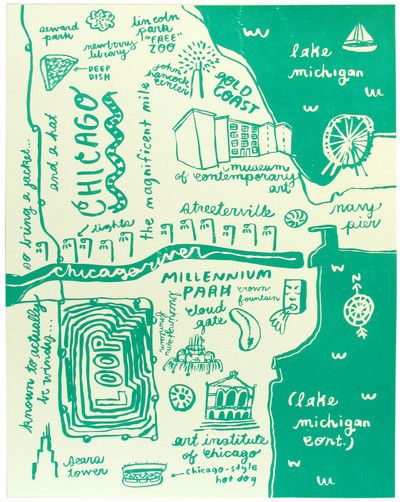 seward
park
lincoln
park
"FREE"
ZOO
newberry
library
DEEP
DISH
john
hancock
center
GOLD
COAST
lake
michigan
CHICAGO
the magnificent mile
museum
of contemporary
art
lights
streeterville
navy
pier
so bring a jacket...
and a hat
chicago river
MILLENNIUM
PARK
crown
fountain
cloud
gate
buckingham
fountain
N
LOOP
known to actually
be windy...
(lake
michigan
cont.)
art institute
of chicago
sears
tower
chicago-style
hot dog